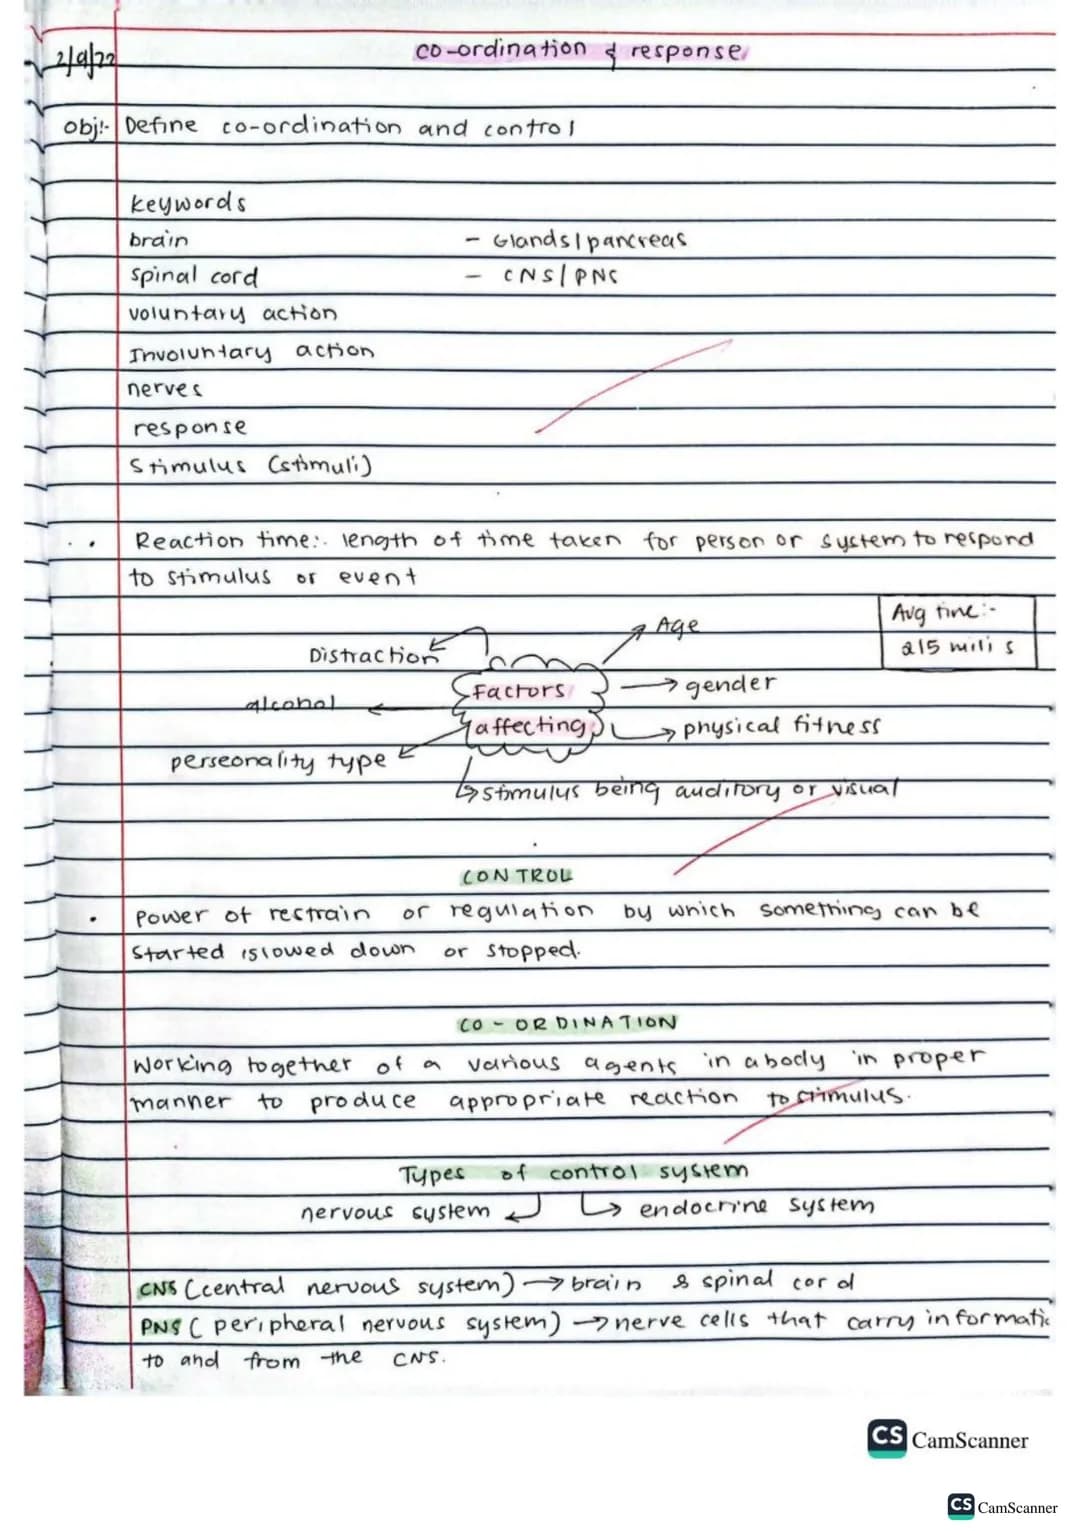 2/9/22
co-ordination & response
Obj:- Define co-ordination and control
keywords
brain - Glands/pancreas
spinal cord - CNS/PNS
voluntary action
Involuntary action
nerves
response
Stimulus (stimuli)
Reaction time:- length of time taken for person or system to respond
to stimulus or event
Avg time:-
215 mili s
Age
Distraction
Factors
affecting
gender
alcohol
physical fitness
perseonality type
stimulus being auditory or visual
CONTROL
Power of restrain or regulation by which something can be
started /slowed down or stopped.
CO-ORDINATION
Working together of a various agents in a body in proper
manner to produce appropriate reaction to stimulus.
Types of control system
nervous system endocrine system
CNS (central nervous system) → brain & spinal cord
PNS (peripheral nervous system) → nerve cells that carry informatio
to and from the CNS.
CS CamScanner
CS CamScanner